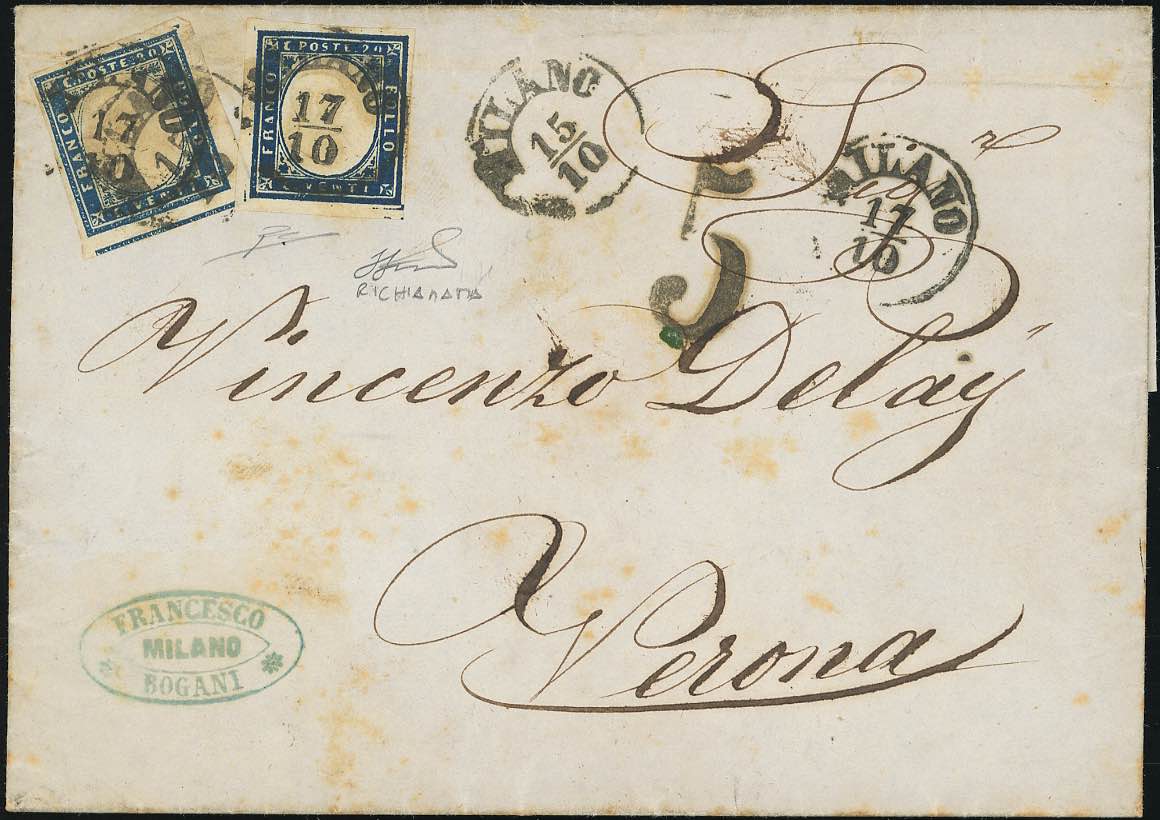 C. POSTE. 20
FRANCO
BOLLO
C. VENTI
MILANO
17
10
C. POSTE. 20
FRANCO
BOLLO
C. VENTI
MILANO
17
10
MILANO
15
10
MILANO
17
10
5
Sig.re
RICHIAMATA
Vincenzo Delaÿ
Verona
FRANCESCO
MILANO
BOGANI